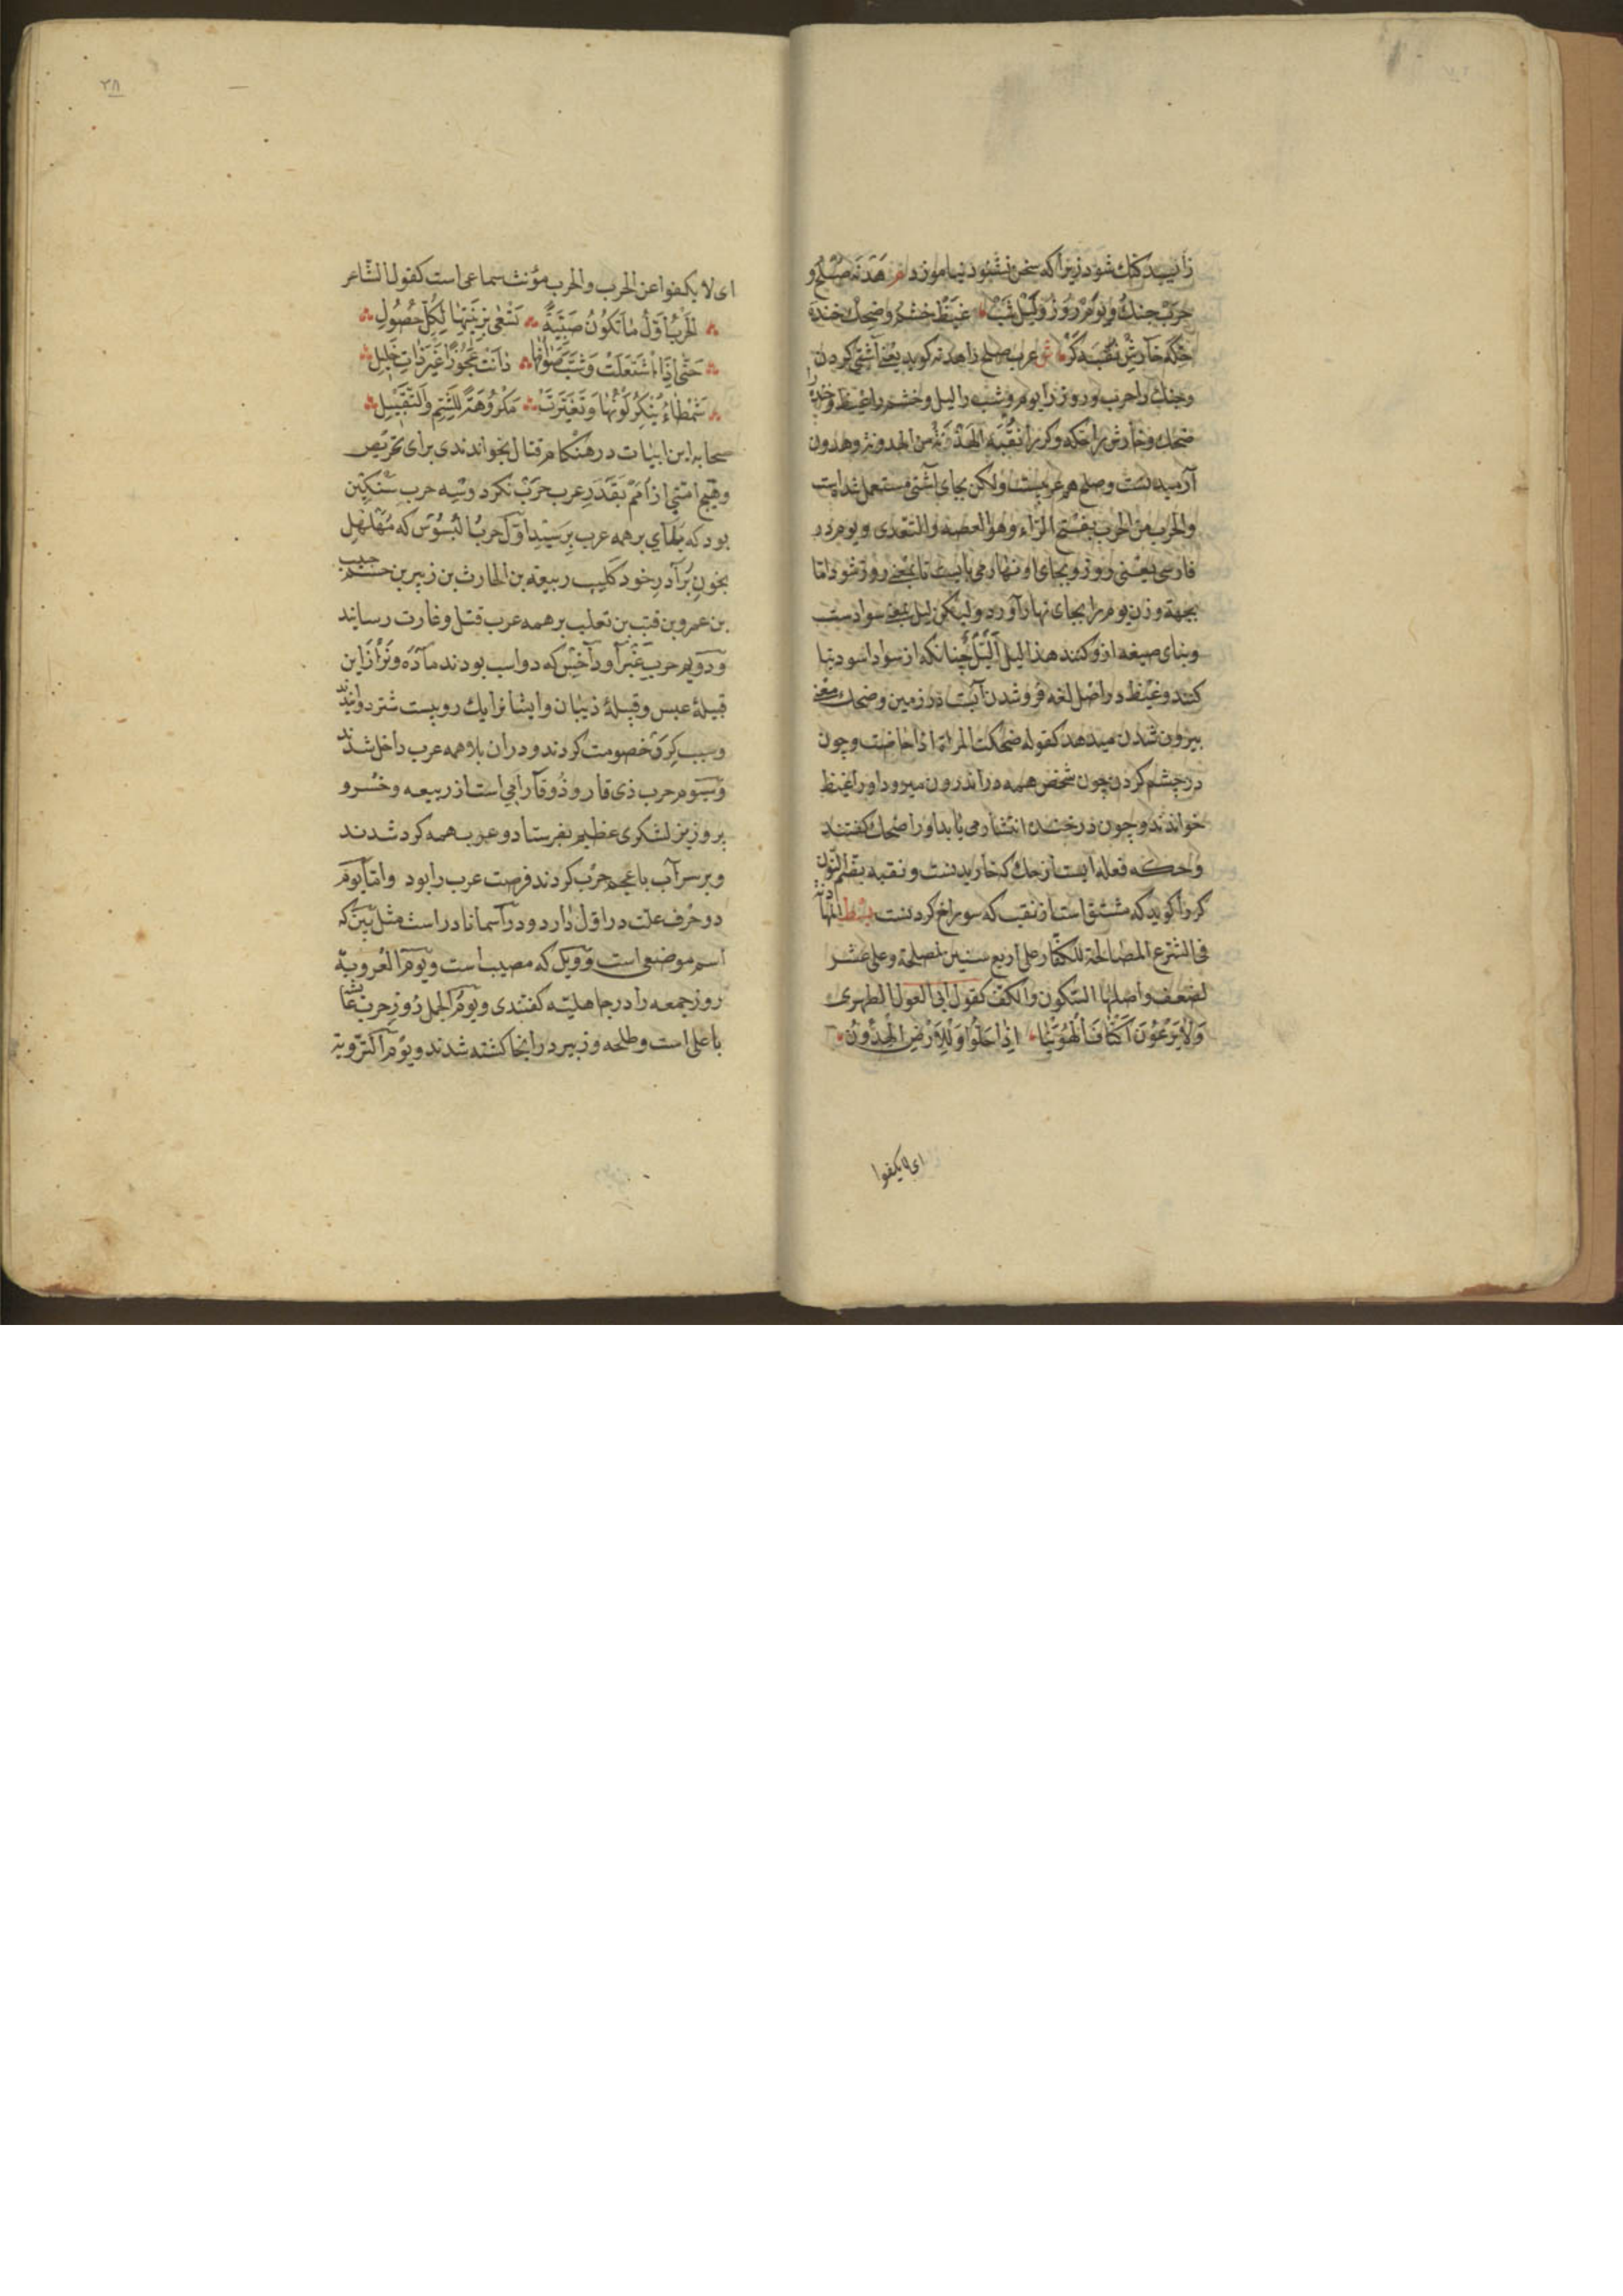 زاییدکنک شود زیرا که سخن نشنود نیاموزد هَدنَه صُلح و
حرب جنك و یَوم روز و لَیل شب غَیظ خشم و ضِحك خنده
حِکّه خارش نُقبَه کَر ش عرب صلح را هدنه کوید یعنی آشتی کردن
وجنك را حرب و روز را یوم و شب را لیل و خشم را غیظ و خنده را
ضحك و خارش را حکه و کر را نقبه الهدنة من الهدون و هدون
آرمیدنست و صلح هم عربیست ولکن بجای آشتی مستعمل شدایت
والحرب من الحرب بفتح الراء وهو العصه والتعدی و یوم در
فارسی یعنی روز و بجای او نهار می بایست تا بمعنی روز شود اما
بجهة وزن یوم را بجای نهار آورد ولیکن لیل بمعنی سوادست
وبنای صیغه ازو کنند هذا لیل اَلیَل چنانکه از سواد اسود بنا
کنند و غیظ در اصل لغه فروشدن آبست در زمین و ضحك معنی
بیرون شدن میدهد کقوله ضحکت المراة اذا حاضت و چون
در خشم کردن چون شخص همه در اندرون میرود اورا غیظ
خواندند و چون در خنده انتشار می یابد اورا ضحك کفتند
و حکه فعله ایست از حك که خاریدنست و نقبه بضم النون
کر را کوید که مشتق است از نقب که سوراخ کردنست المهادنة
فی الشرع المصالحة للکفار علی اربع سنین لمصلحة وعلی عشر
لضعف واصلها السکون والکف کقول ابی الغول الطهری
وَلا یَرعَونَ اَکنافَ الهُوَینا اِذا حَلّوا وَلا اَرضَ الهُدُونِ
ای لا یکفوا
۲۸
ای لا یکفوا عن الحرب والحرب مؤنث سماعی است کقول الشاعر
اَلحَربُ اَوَّلُ ما تَکُونُ صَبِیَّةً تَسعی بِزینَتِها لِکُلِّ جَهُولِ
حَتّی اِذَا اشتَعَلَت وَشَبَّ ضِرامُها وَلَّت عَجُوزًا غَیرَ ذاتِ خَلیلِ
شَمطاءَ یُنکَرُ لَونُها وَتَغَیَّرَت مَکرُوهَةً لِلشَّمِّ وَالتَّقبیلِ
صحابه این ابیات در هنکام قتال بخواندندی برای تحریص
وهیچ امتی از اُمَم بقدر عرب حرب نکرد و سه حرب سنکین
بود که بلاهای بر همه عرب برسید اول حرب البسوس که مهلهل
بخون برادر خود کلیب ربیعه بن الحارث بن زبیر بن جشم حبیب
بن عمرو بن بن تعلب بر همه عرب قتل و غارت رسانید
و دویم حرب غبرا و داحس که دو اسب بودند ماده و نر از این
قبیلهٔ عبس و قبیلهٔ ذبیان وایشانرا یك رو بیست شتر دوانند
وسبب کِرَو خصومت کردند و در ان بلا همه عرب داخل شدند
و سوم حرب ذی قار و ذوقار آبی است از ربیعه و خسرو
پرویز لشکری عظیم بفرستاد و عرب همه کرد شدند
و بر سر آب با عجم حرب کردند فرصت عرب را بود واما یوم
دو حرف علت در اول دارد و در آسما نادر است مثل یین که
اسم موضعی است و ویل که مصیب است و یوم العروبة
روز جمعه را در جاهلیة کفتندی و یوم الجمل روز حرب عایشه
با علی است و طلحه و زبیر در انجا کشته شدند و یوم التّرویة